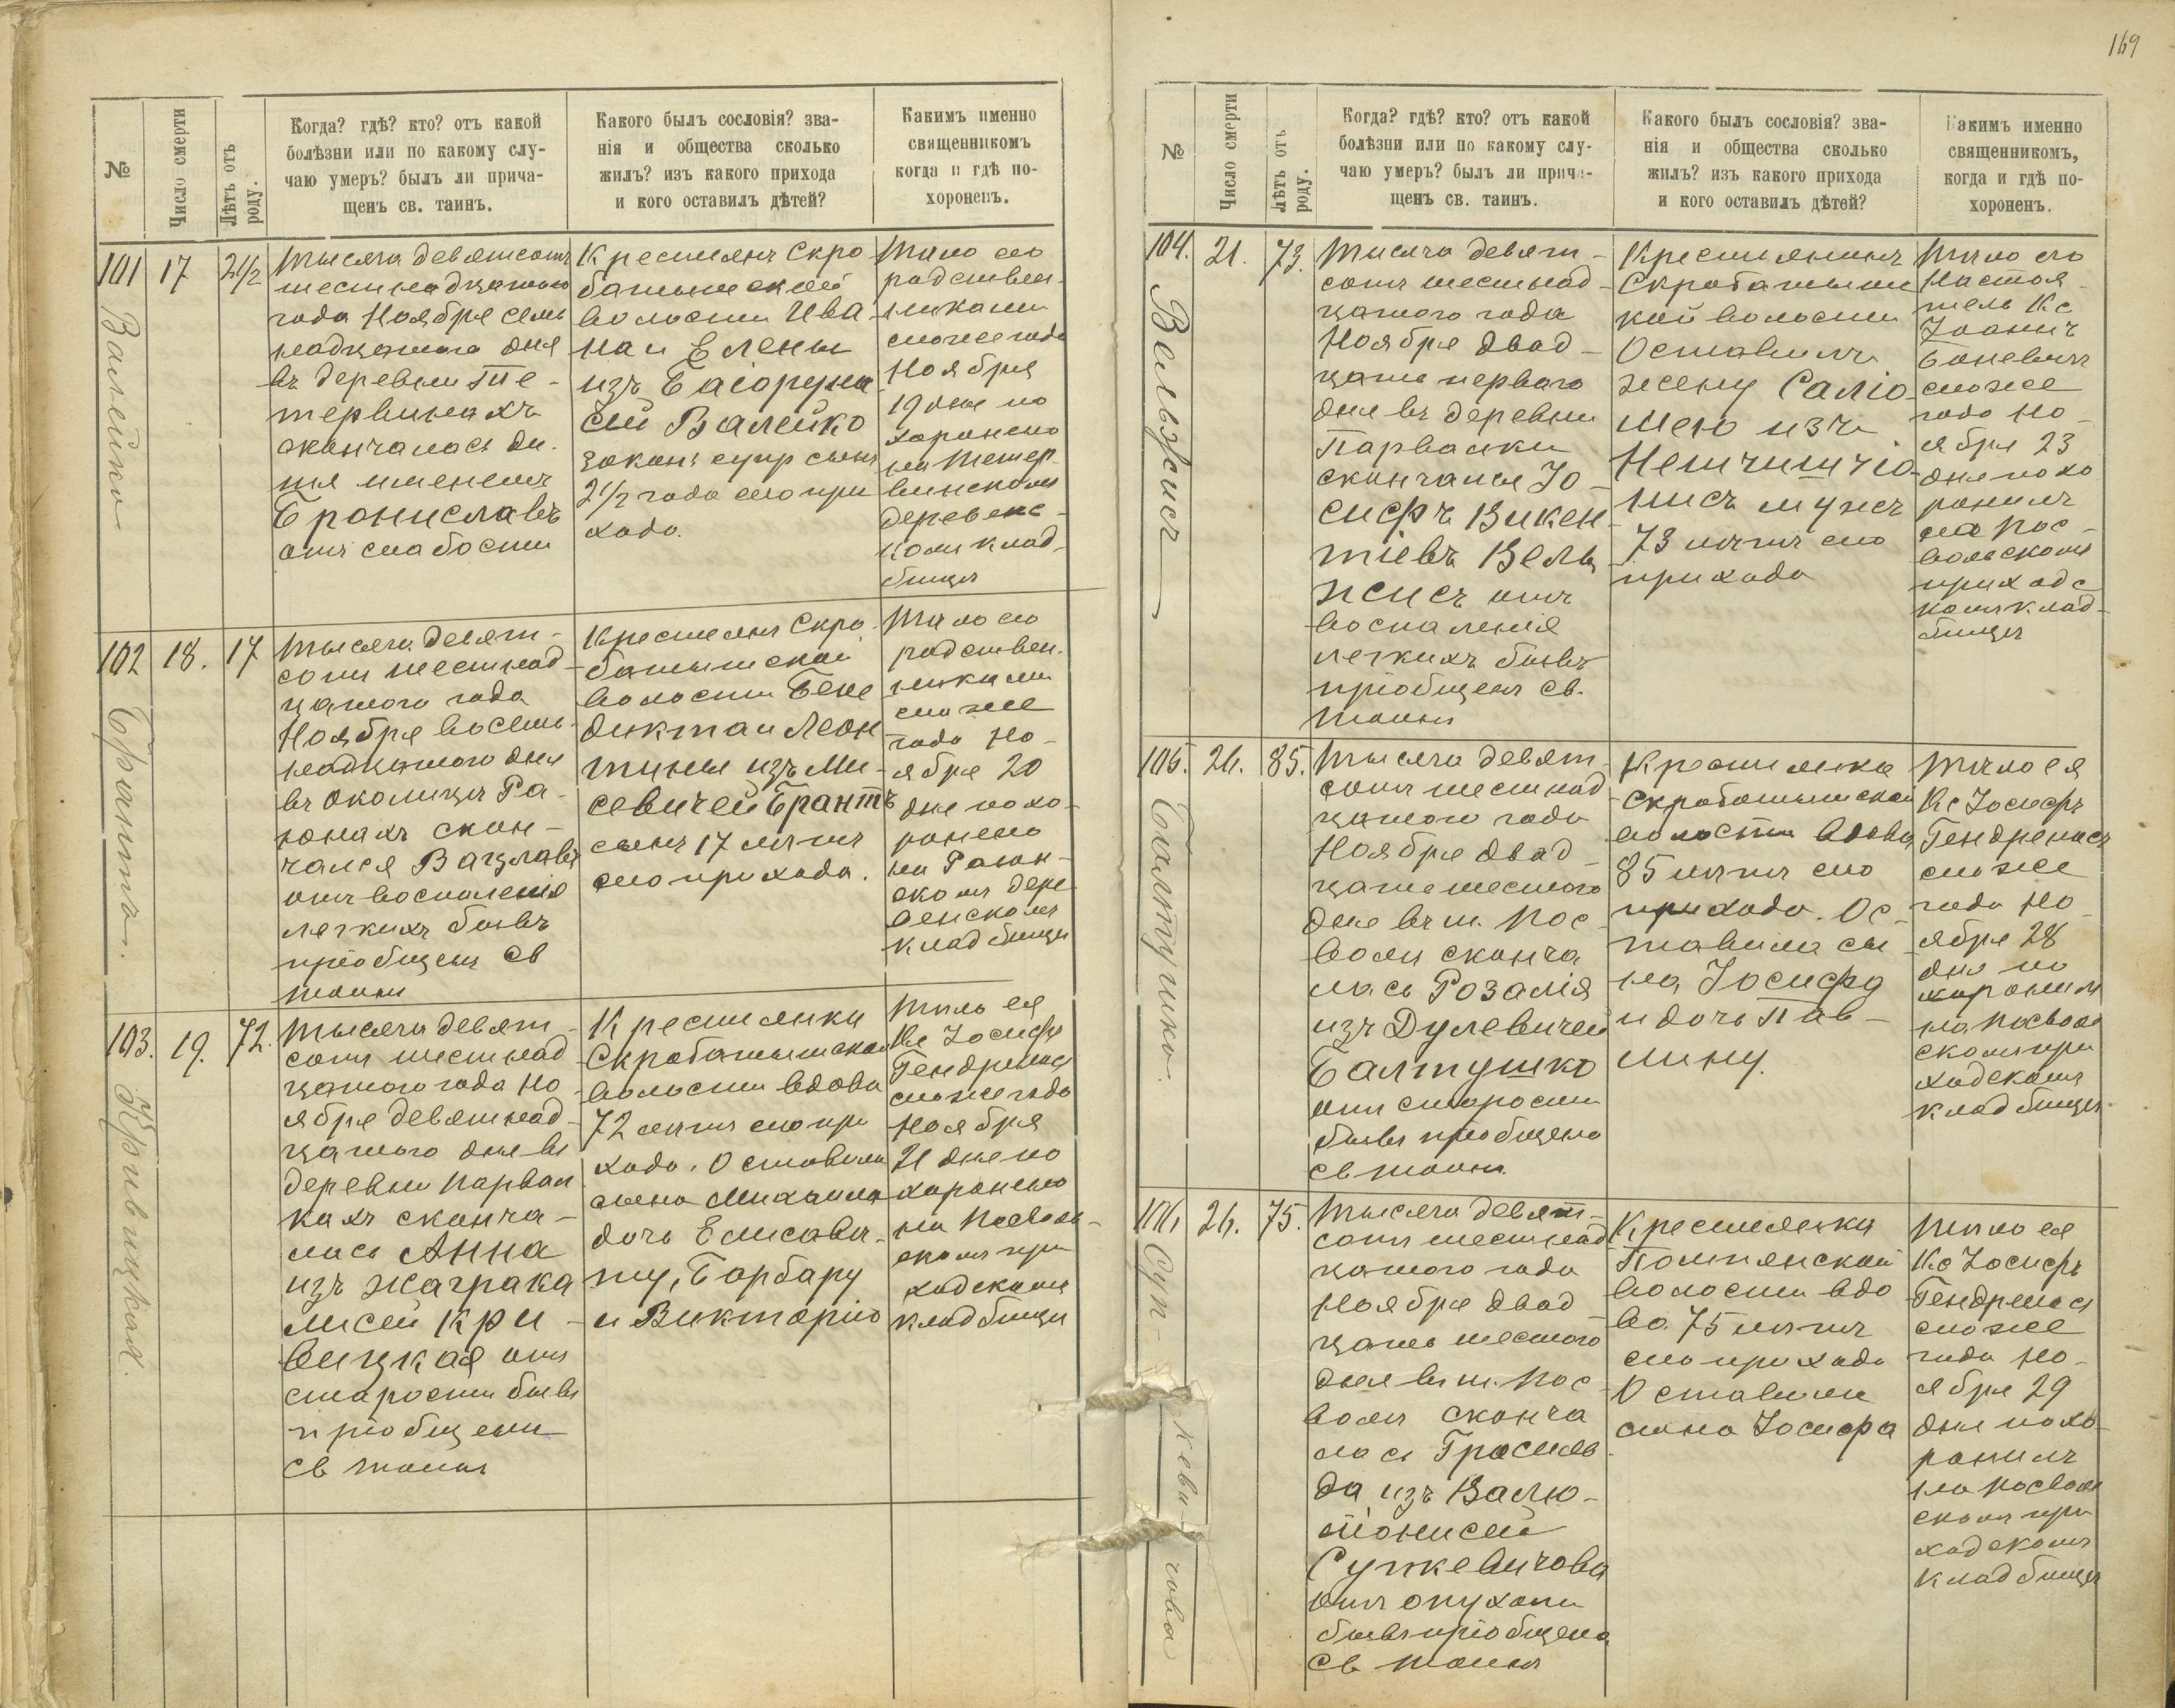 169
№
Число смерти
Лѣтъ отъ роду.
Когда? гдѣ? кто? отъ какой
болѣзни или по какому слу-
чаю умеръ? былъ ли прича-
щенъ св. таинъ.
Какого былъ сословія? зва-
нія и общества сколько
жилъ? изъ какого прихода
и кого оставилъ дѣтей?
Какимъ именно
священникомъ
когда и гдѣ по-
хороненъ.
101
17
2 1/2
Валейко
Тысяча девятсотъ
шестнадцатого
года Ноября семь
надцатого дня
въ деревни Те-
тервинахъ
скончалось ди-
тя именемъ
Брониславъ
отъ слабости
Крестьянъ Скро
батышской
волости Ива-
на и Елены
изъ
Валейко
законъ супр сынъ
2 1/2 года сего при
хода.
Тѣло его
родствен-
никами
сегоже года
Ноября
19 дня по
хоронено
на Тетер-
винскомъ
деревенс-
комъ клад-
бищѣ
102
18.
17
Брантъ.
Тысяча девят-
сотъ шестнад-
цатого года
Ноября восемь-
надцатого дня
въ околицѣ Ра-
юнахъ скон-
чался Вацлавъ
отъ воспаленія
легкихъ бывъ
пріобщенъ св
тоинъ
Крестьянъ Скро-
батышской
волости Бене
дикта и Леон
тины изъ Ми-
севичей Брантъ
сынъ 17 лѣтъ
сего прихода.
Тѣло его
родствен-
никами
сегоже
года Но-
ября 20
дня похо-
ронено
на Раюн-
скомъ дере-
венскомъ
кладбищѣ
103.
19.
72.
Кривицкая.
Тысяча девят-
сотъ шестнад-
цатого года Но-
ября девятнад-
цатого дня въ
деревни Парвал
кахъ сконча-
лась Анна
изъ Жаграка
лисей Кри-
вицкая отъ
старости бывъ
пріобщена
св тоинъ
Крестьянка
Скробатышской
волости вдова
72 лѣтъ сего при
хода. Оставила
сына Михаила
дочь Елисаве-
ту, Барбару
и Викторію
Тѣло ея
Кс Іосифъ
Гендрелисъ
сегоже года
Ноября
21 дня по
хоронено
на Посволь-
скомъ при
ходскомъ
кладбищѣ
№
Число смерти
Лѣтъ отъ роду.
Когда? гдѣ? кто? отъ какой
болѣзни или по какому слу-
чаю умеръ? былъ ли прича-
щенъ св. таинъ.
Какого былъ сословія? зва-
нія и общества сколько
жилъ? изъ какого прихода
и кого оставилъ дѣтей?
Какимъ именно
священникомъ,
когда и гдѣ по-
хороненъ.
104.
21.
73.
Вельжисъ
Тысяча девят-
сотъ шестнад-
цатого года
Ноября двад-
цать первого
дня въ деревни
Парвалки
скончался Іо-
сифъ Викен
тіевъ Вель
жисъ отъ
воспаленія
легкихъ бывъ
пріобщенъ св.
тоинъ
Крестьянинъ
Скробатышс
кой волости
Оставилъ
жену Саліо
мею изъ
мужъ
73 лѣтъ сего
прихода
Тѣло его
Настоя-
тель Кс
Іоаннъ
сегоже
года Но-
ября 23
дня похо
ронилъ
на Пос-
вольскомъ
приходс
комъ клад-
бищѣ
105.
26.
85.
Балтушко.
Тысяча девят-
сотъ шестнад
цатого года
Ноября двад-
цать шестого
дня въ м. Пос-
воли сконча
лась Розалія
изъ Дулевичей
Балтушко
отъ старости
бывъ пріобщена
св тоинъ.
Крестьянка
Скробатышской
волости вдова
85 лѣтъ сего
прихода. Ос-
тавила сы
на Іосифа
и дочь Пав-
лину.
Тѣло ея
Кс Іосифъ
Гендрелисъ
сегоже
года Но-
ября 28
дня по
хоронилъ
на Посволь
скомъ при
ходскомъ
кладбищѣ.
106.
26.
75.
Суп-
кеви-
чова
Тысяча девят-
сотъ шестнад
цатого года
Ноября двад-
цать шестого
дня въ м. Пос-
воли сконча
лась Грасиль-
да изъ Валю-
Супкевичова
отъ опухоли
бывъ пріобщена
св тоинъ
Крестьянка
Помпянской
волости вдо
ва 75 лѣтъ
сего прихода
Оставила
сына Іосифа
Тѣло ея
Кс Іосифъ
Гендрелисъ
сегоже
года Но-
ября 29
дня похо-
ронилъ
на Посволь
скомъ при
ходскомъ
кладбищѣ